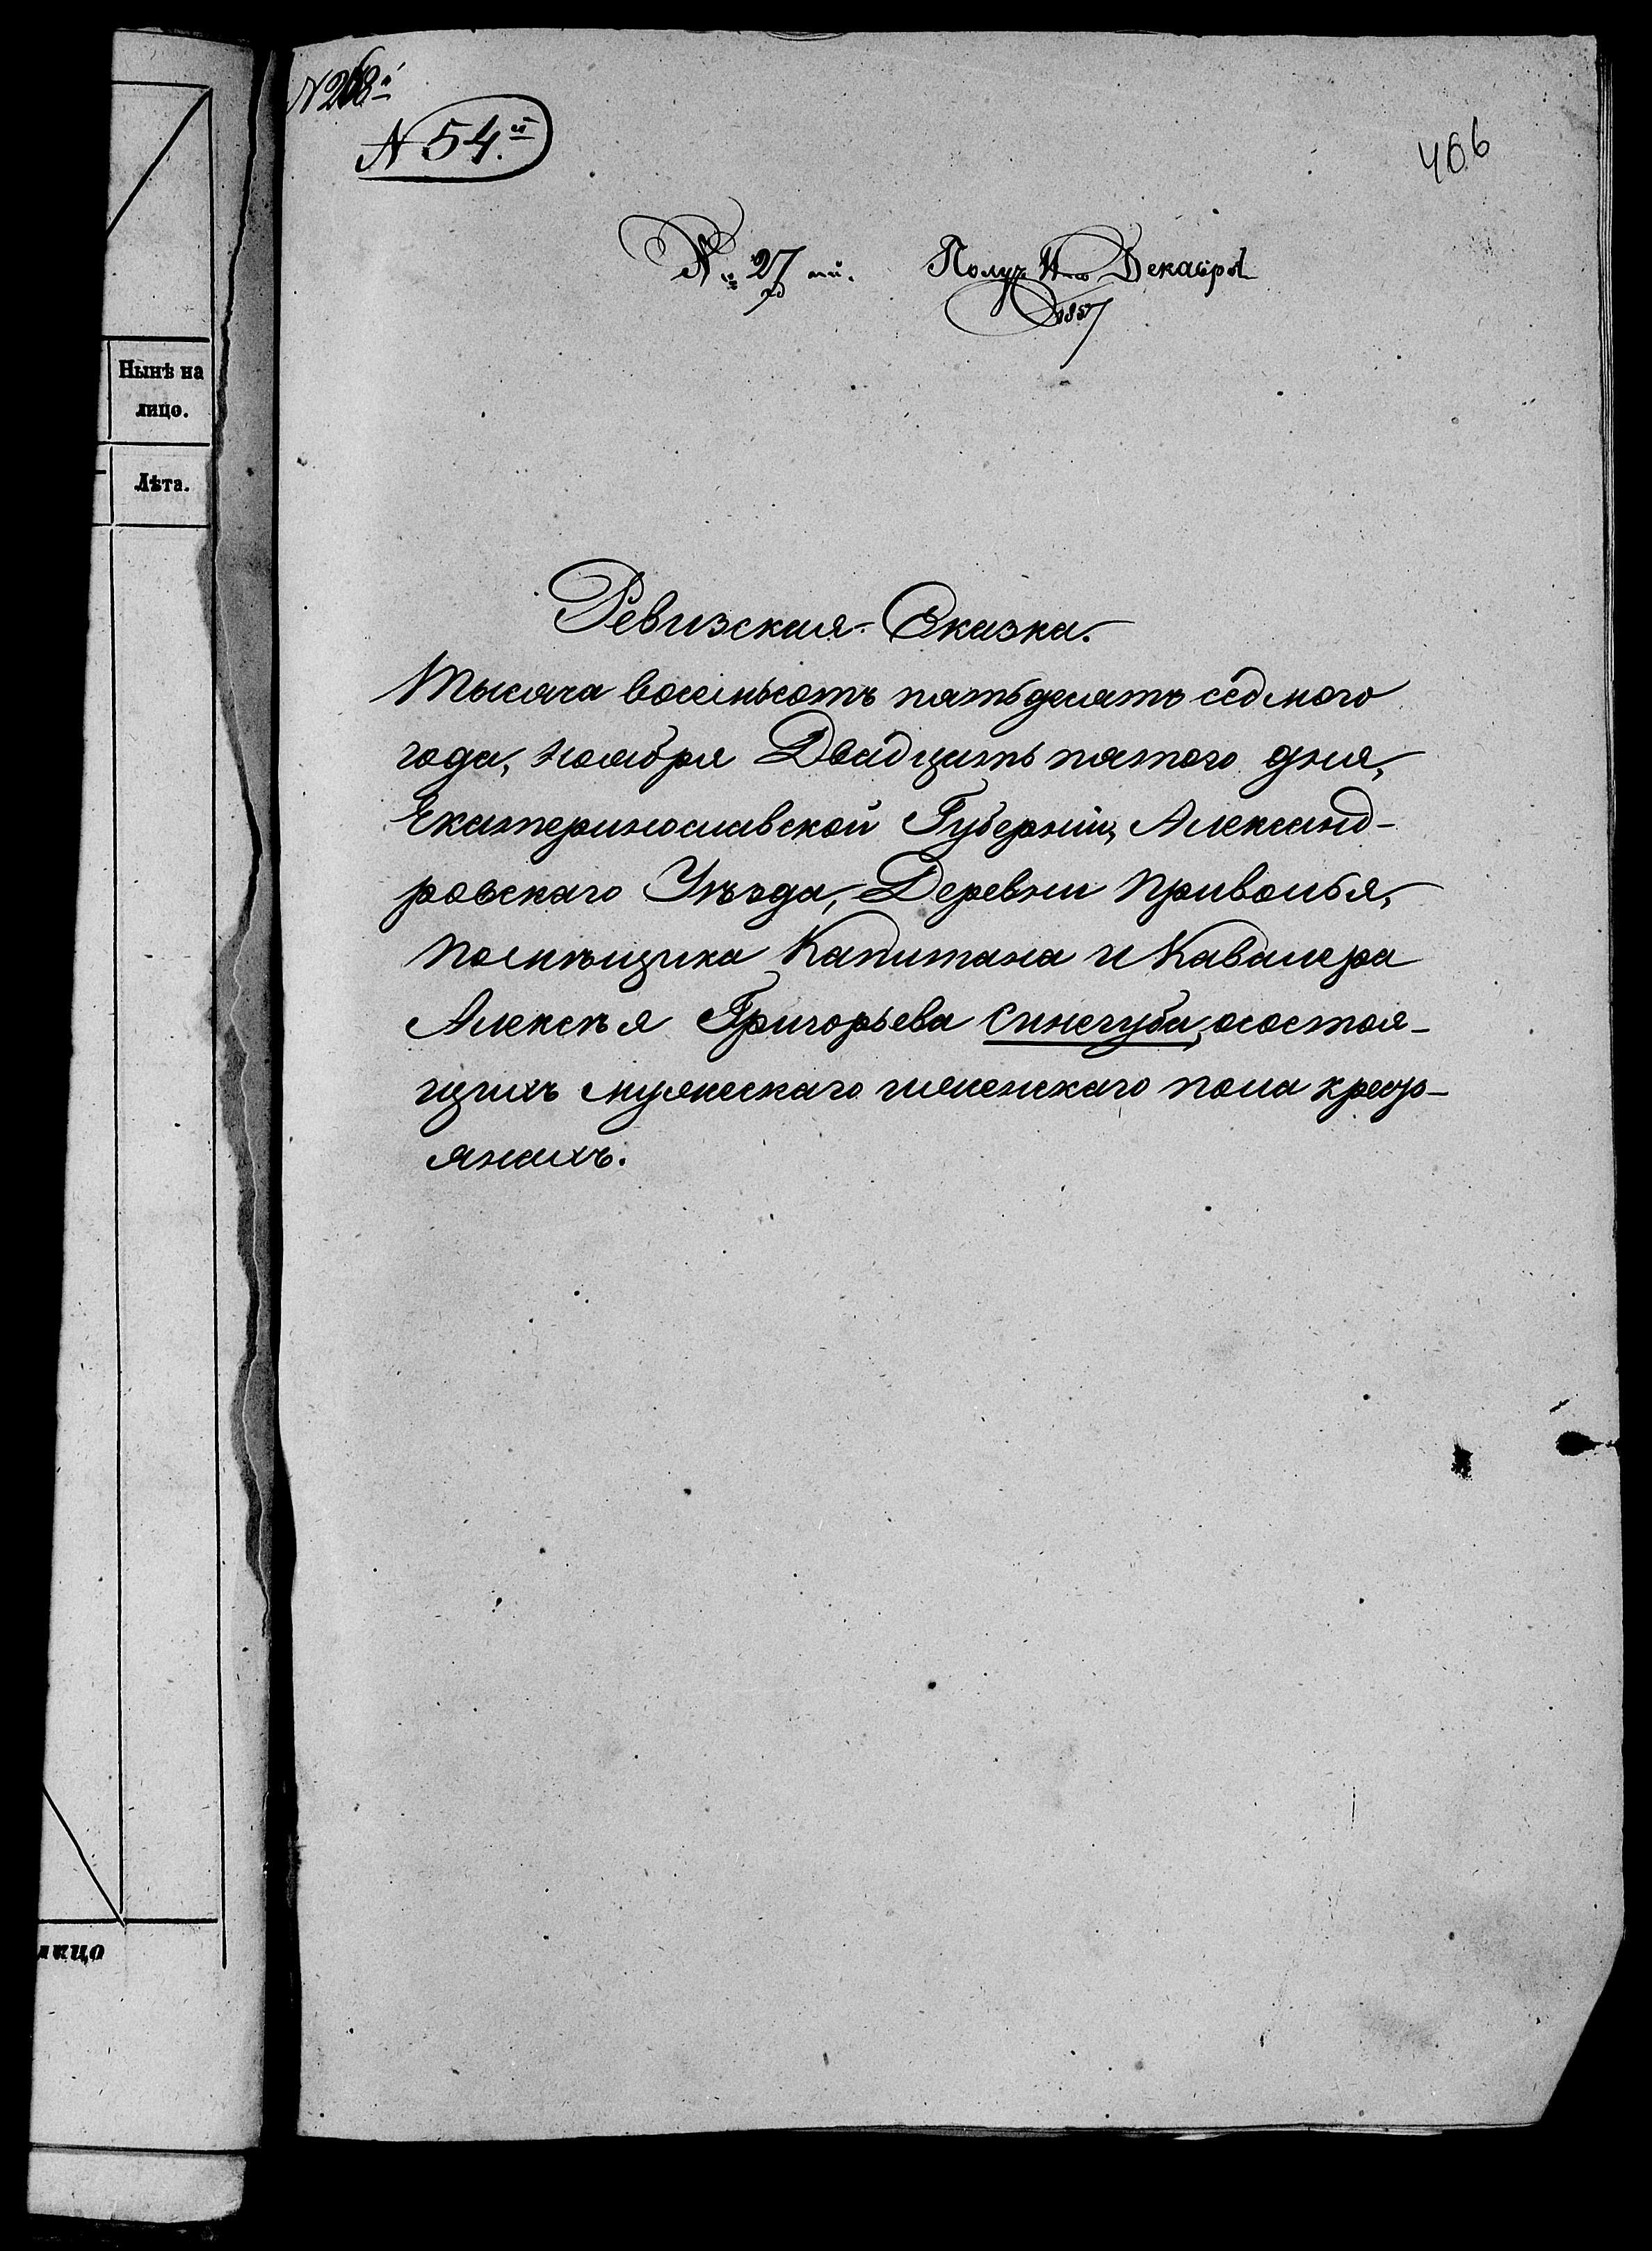 № 268й
№ 54.й
406
№ 27 ой. Получ 11го Декабря
1857
Нынѣ на
лицо.
Лѣта.
Ревизская Сказка.
Тысяча восемьсотъ пятьдесятъ седмого
года, ноября Двадцать пятого дня,
Екатеринославской Губерніи, Александ-
ровскаго Уѣзда, Деревни Приволья,
помѣщика Капитана и Кавалера
Алексѣя Григорьева Синегуба, осостоя-
щихъ мужескаго иженскаго пола крестъ-
янахъ.
лицо